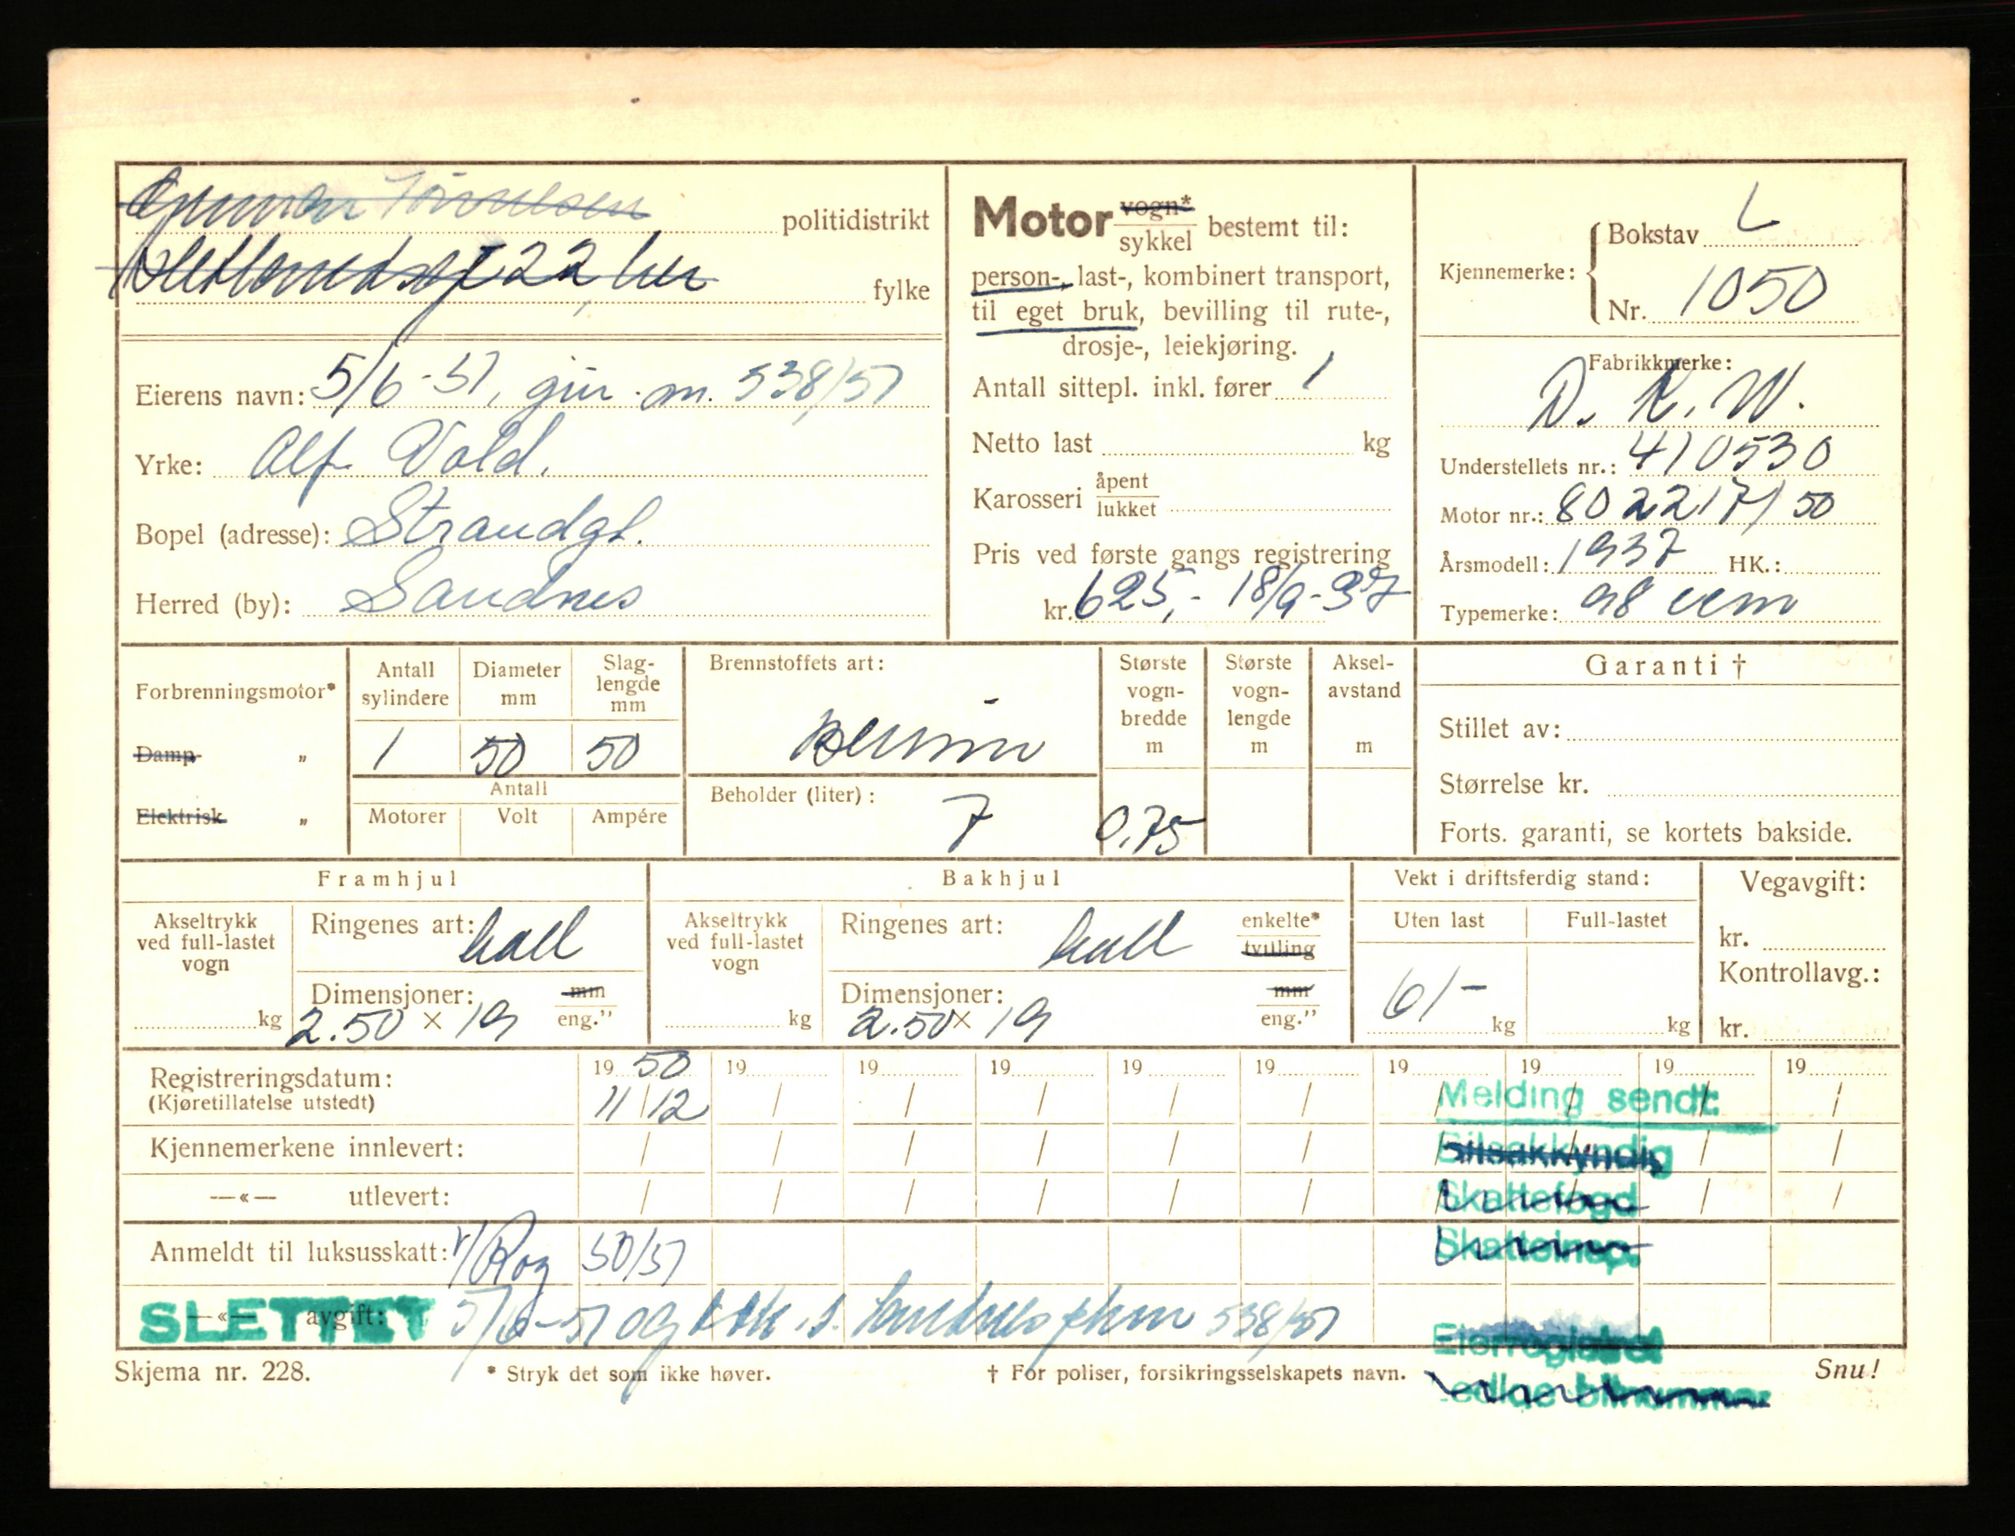 politidistrikt
22 her fylke
Eierens navn: 5/6-51, 538/51
Yrke: Alf Vold.
Bopel (adresse): Strandgt.
Herred (by): Sandnes
Motor vogn* sykkel bestemt til:
person-, last-, kombinert transport,
til eget bruk, bevilling til rute-,
drosje-, leiekjøring.
Antall sittepl. inkl. fører 1
Netto last kg
Karosseri åpent lukket
Pris ved første gangs registrering
kr. 625,- 18/9-37
Kjennemerke: Bokstav L
Nr. 1050
Fabrikkmerke:
D. K. W.
Understellets nr.: 410530
Motor nr.: 802217/50
Årsmodell: 1937 HK.:
Typemerke: 98 ccm
Forbrenningsmotor*
Damp "
Elektrisk "
Antall sylindere Diameter mm Slag-lengde mm
1 50 50
Antall
Motorer Volt Ampére
Brennstoffets art:
Bensin
Beholder (liter): 7
Største vogn-bredde m Største vogn-lengde m Aksel-avstand m
0,75
Garanti †
Stillet av:
Størrelse kr.
Forts. garanti, se kortets bakside.
Framhjul
Akseltrykk ved full-lastet vogn kg
Ringenes art: ball
Dimensjoner: mm
2.50 × 19 eng."
Bakhjul
Akseltrykk ved full-lastet vogn kg
Ringenes art: ball enkelte* tvilling
Dimensjoner: mm
2.50 × 19 eng."
Vekt i driftsferdig stand:
Uten last Full-lastet
61- kg kg
Vegavgift:
kr.
Kontrollavg.:
kr.
19 50 19 19 19 19 19 19 19 19 19
Registreringsdatum:
(Kjøretillatelse utstedt) 11/12 / / / / / / / / /
Kjennemerkene innlevert: / / / / / / / / / /
—«— utlevert: / / / / / / / / / /
Anmeldt til luksusskatt: 50/51
—«— avgift:
SLETTET 5/6-51 og 538/51
Melding sendt:
Bilsakkyndig
Skattefogd
Skatteinsp.
Eierregistret
Skjema nr. 228.
* Stryk det som ikke høver.
† For poliser, forsikringsselskapets navn.
Snu!